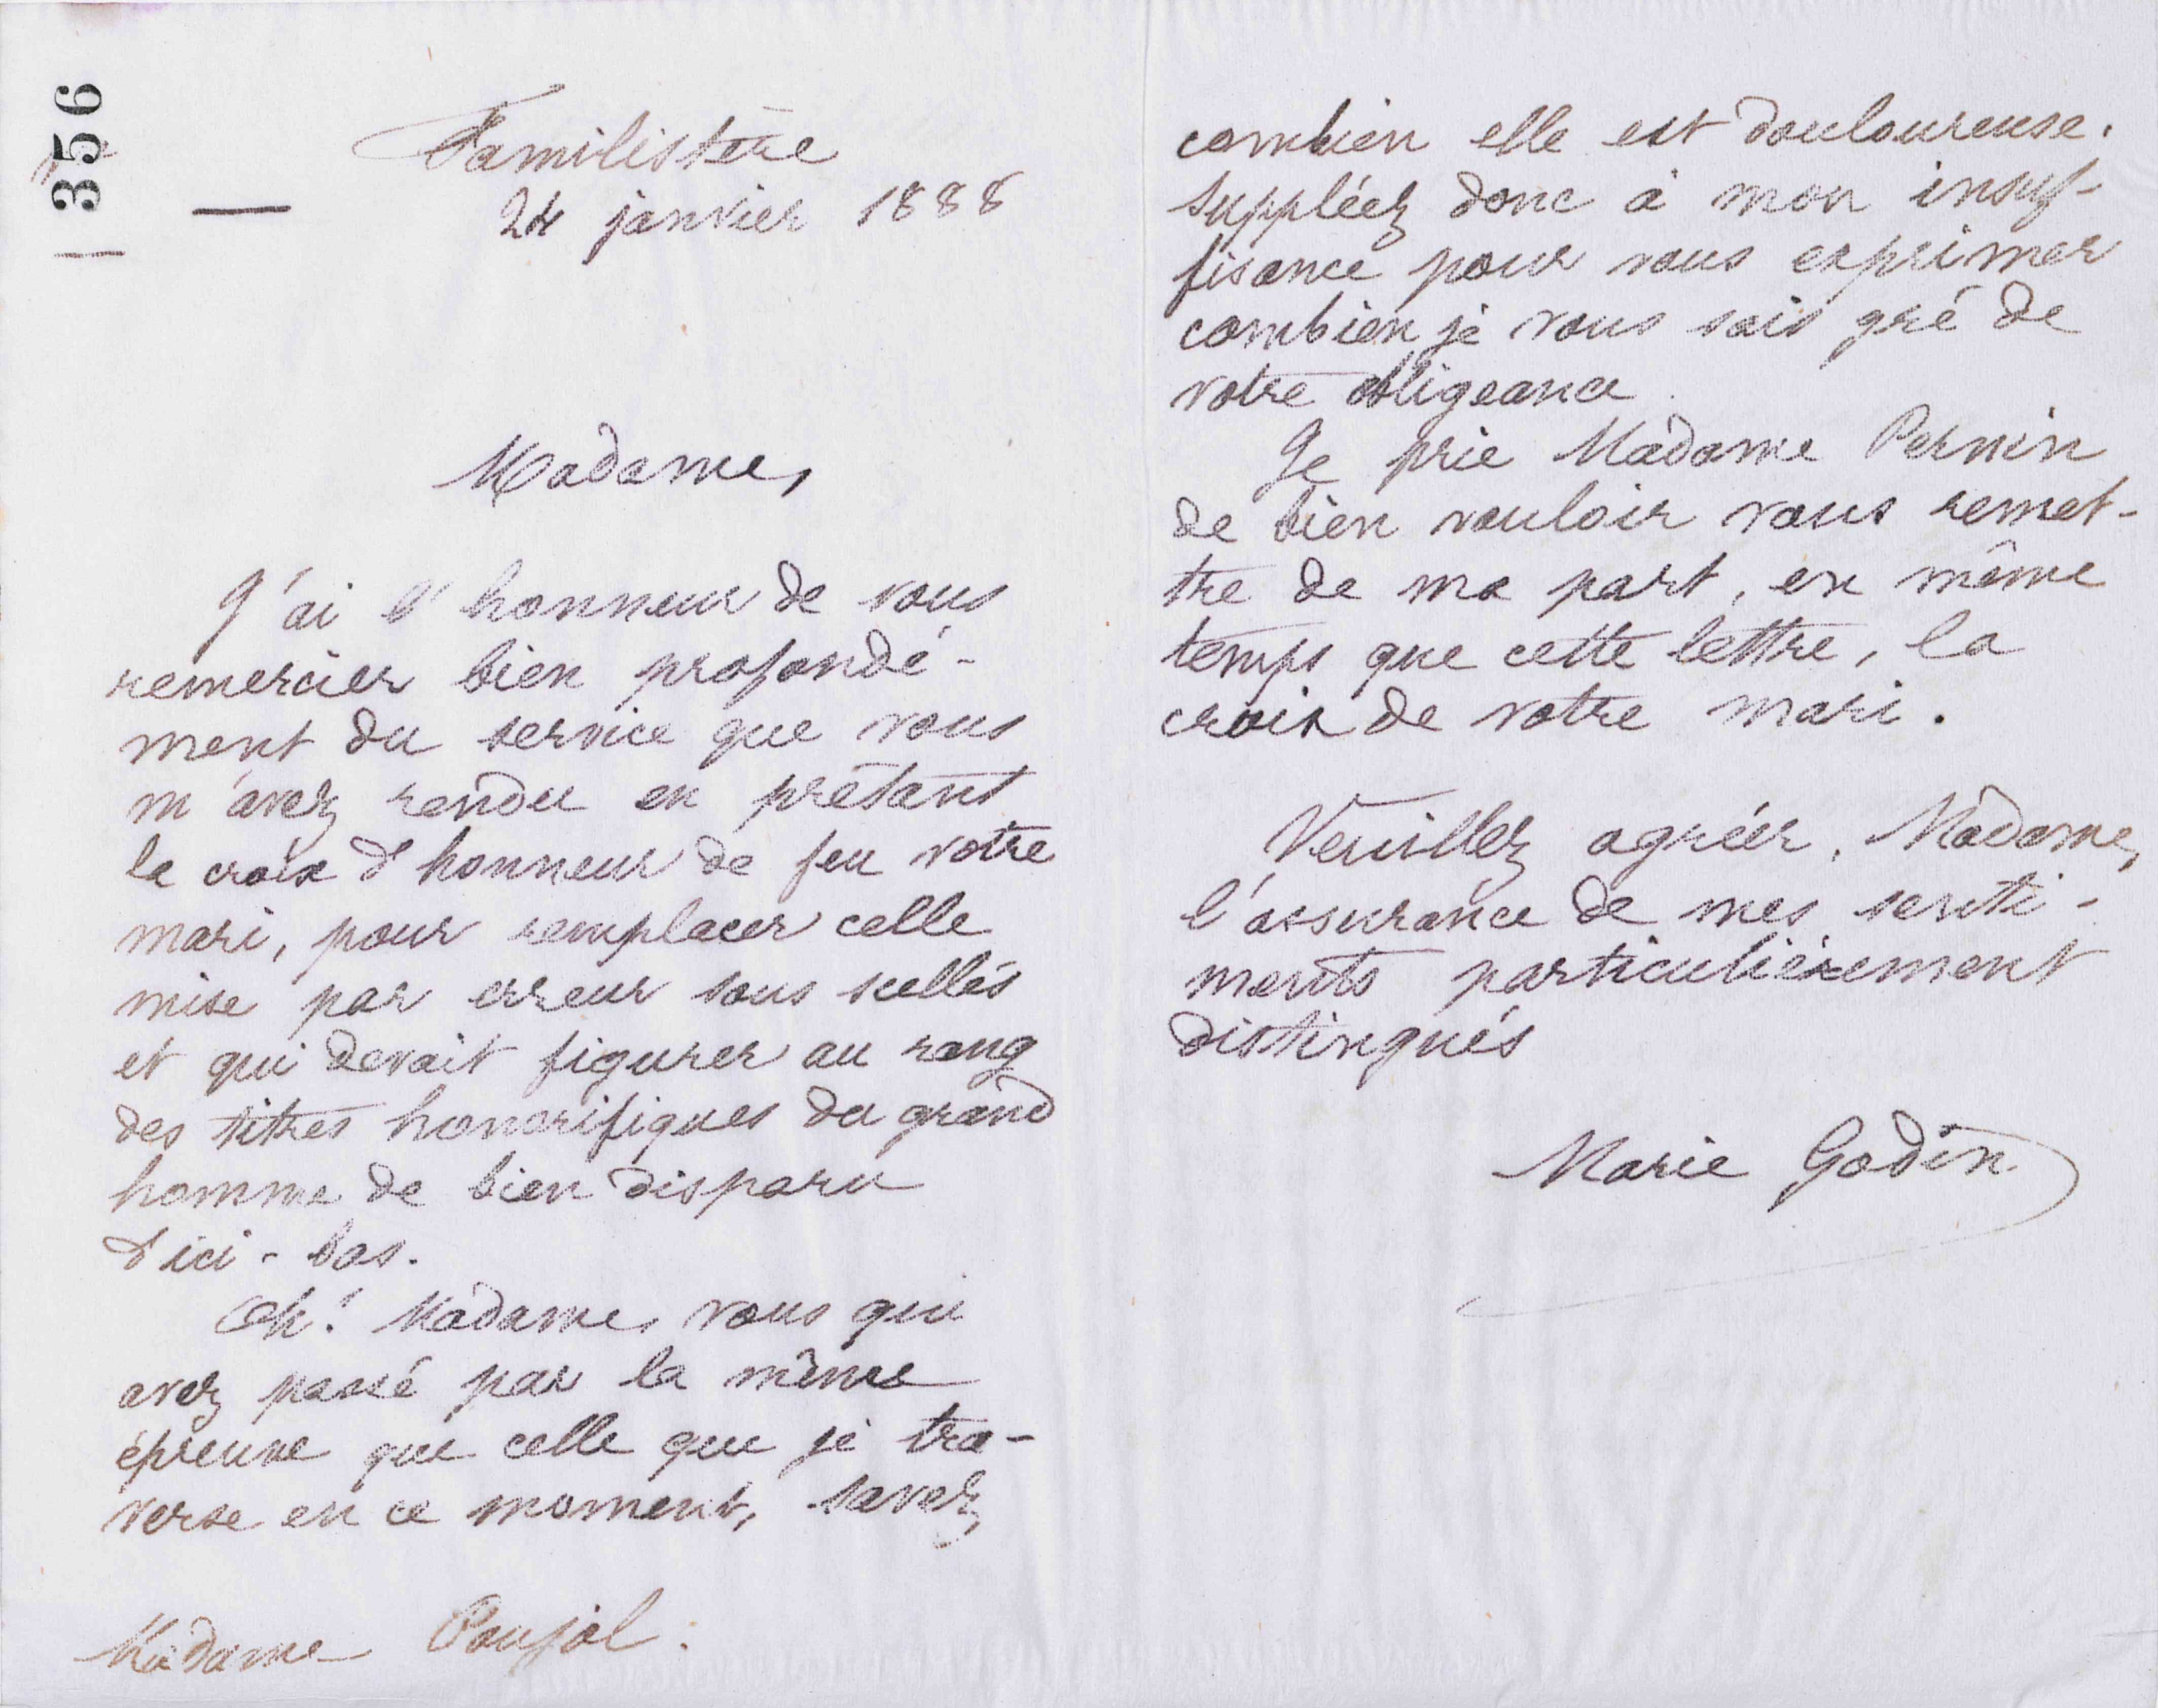 356
Familistère
24 janvier 1888
Madame,
J'ai l'honneur de vous
remercier bien profondé-
ment du service que vous
m'avez rendu en prêtant
la croix d'honneur de feu votre
mari, pour remplacer celle
mise par erreur sous scellés
et qui devait figurer au rang
des titres honorifiques du grand
homme de bien disparu
d'ici-bas.
Oh! Madame, vous qui
avez passé par la même
épreuve que celle que je tra-
verse en ce moment, savez
Madame Poujol.
combien elle est douloureuse.
Suppléez donc à mon insuf-
fisance pour vous exprimer
combien je vous sais gré de
votre obligeance.
Je prie Madame Pernin
de bien vouloir vous remet-
tre de ma part, en même
temps que cette lettre, la
croix de votre mari.
Veuillez agréer, Madame,
l'assurance de mes senti-
ments particulièrement
distingués
Marie Godin